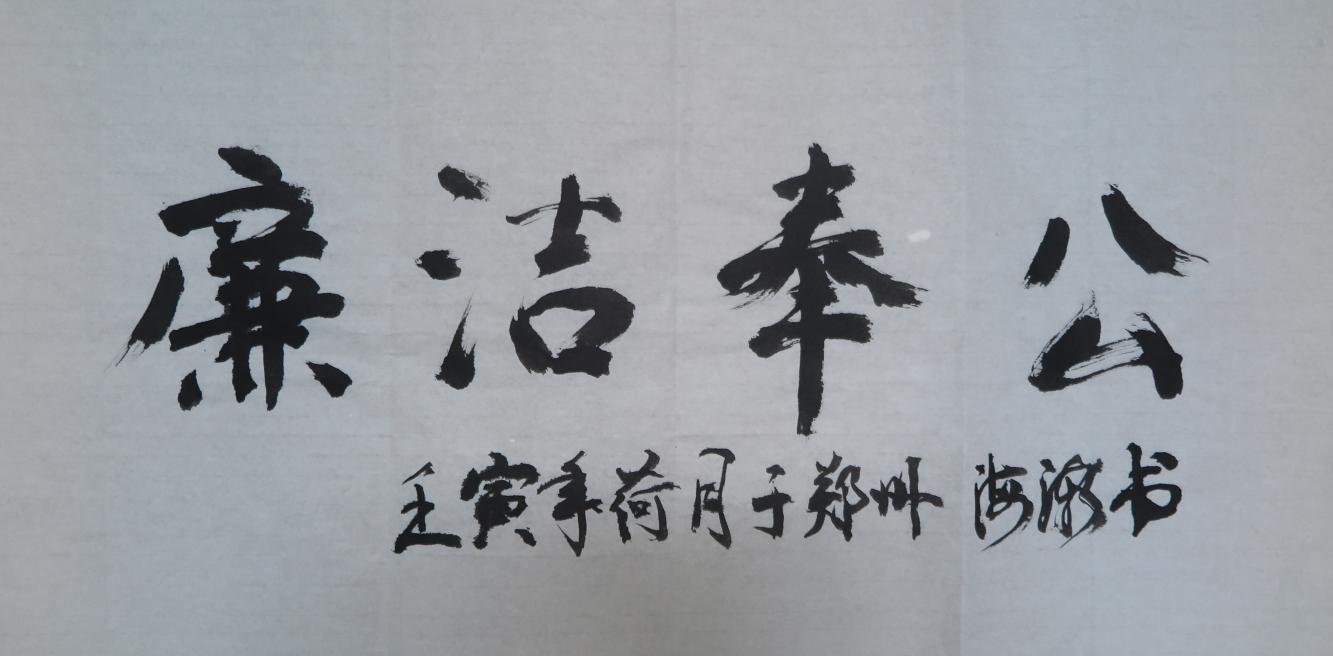 廉洁奉公
壬寅年荷月于郑州 海波书